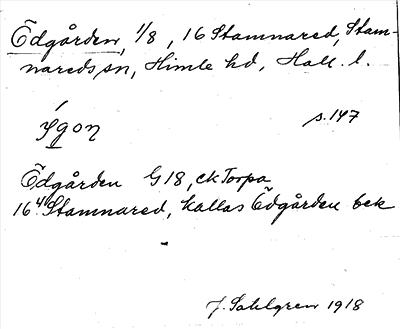 Ödgården, 1/8, 16 Stamnared, Stam-
nareds sn, Himle hd, Hall. l.
s. 147
Ödgården G 18, ek Torpa
16 Stamnared, kallas Ödgården bek
J. Sahlgren 1918